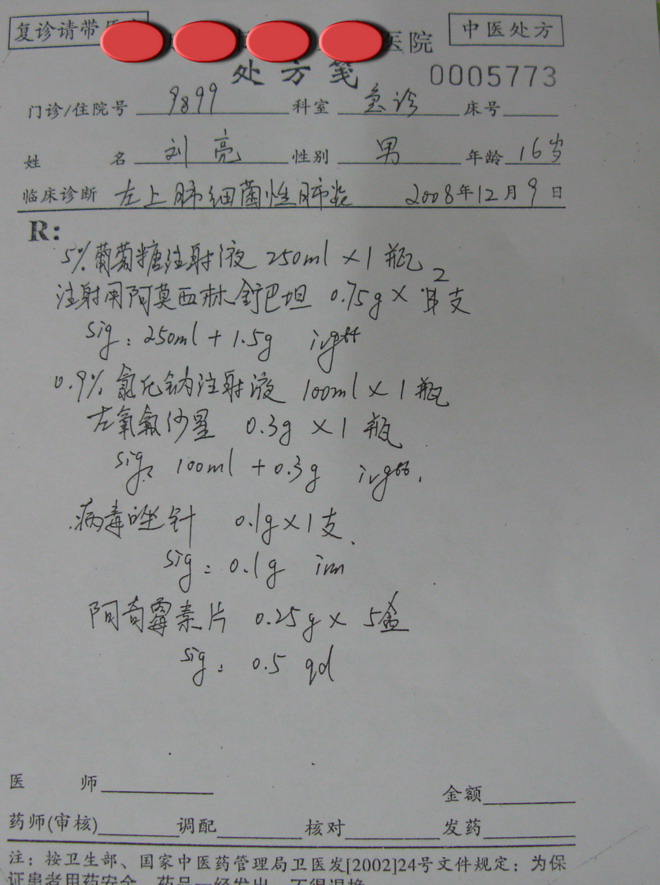 复诊请带 医院 中医处方
处方笺 0005773
门诊/住院号 9899 科室 急诊 床号
姓名 刘亮 性别 男 年龄 16岁
临床诊断 左上肺细菌性肺炎 2008年12月9日
R:
5%葡萄糖注射液 250ml×1瓶
注射用阿莫西林舒巴坦 0.75g×2支
Sig: 250ml+1.5g ivgtt
0.9%氯化钠注射液 100ml×1瓶
左氧氟沙星 0.3g×1瓶
Sig: 100ml+0.3g ivgtt.
病毒唑针 0.1g×1支
Sig: 0.1g im
阿奇霉素片 0.25g×5盒
Sig: 0.5 qd
医师
金额
药师(审核) 调配 核对 发药
注：按卫生部、国家中医药管理局卫医发[2002]24号文件规定：为保
证患者用药安全，药品一经发出，不得退换